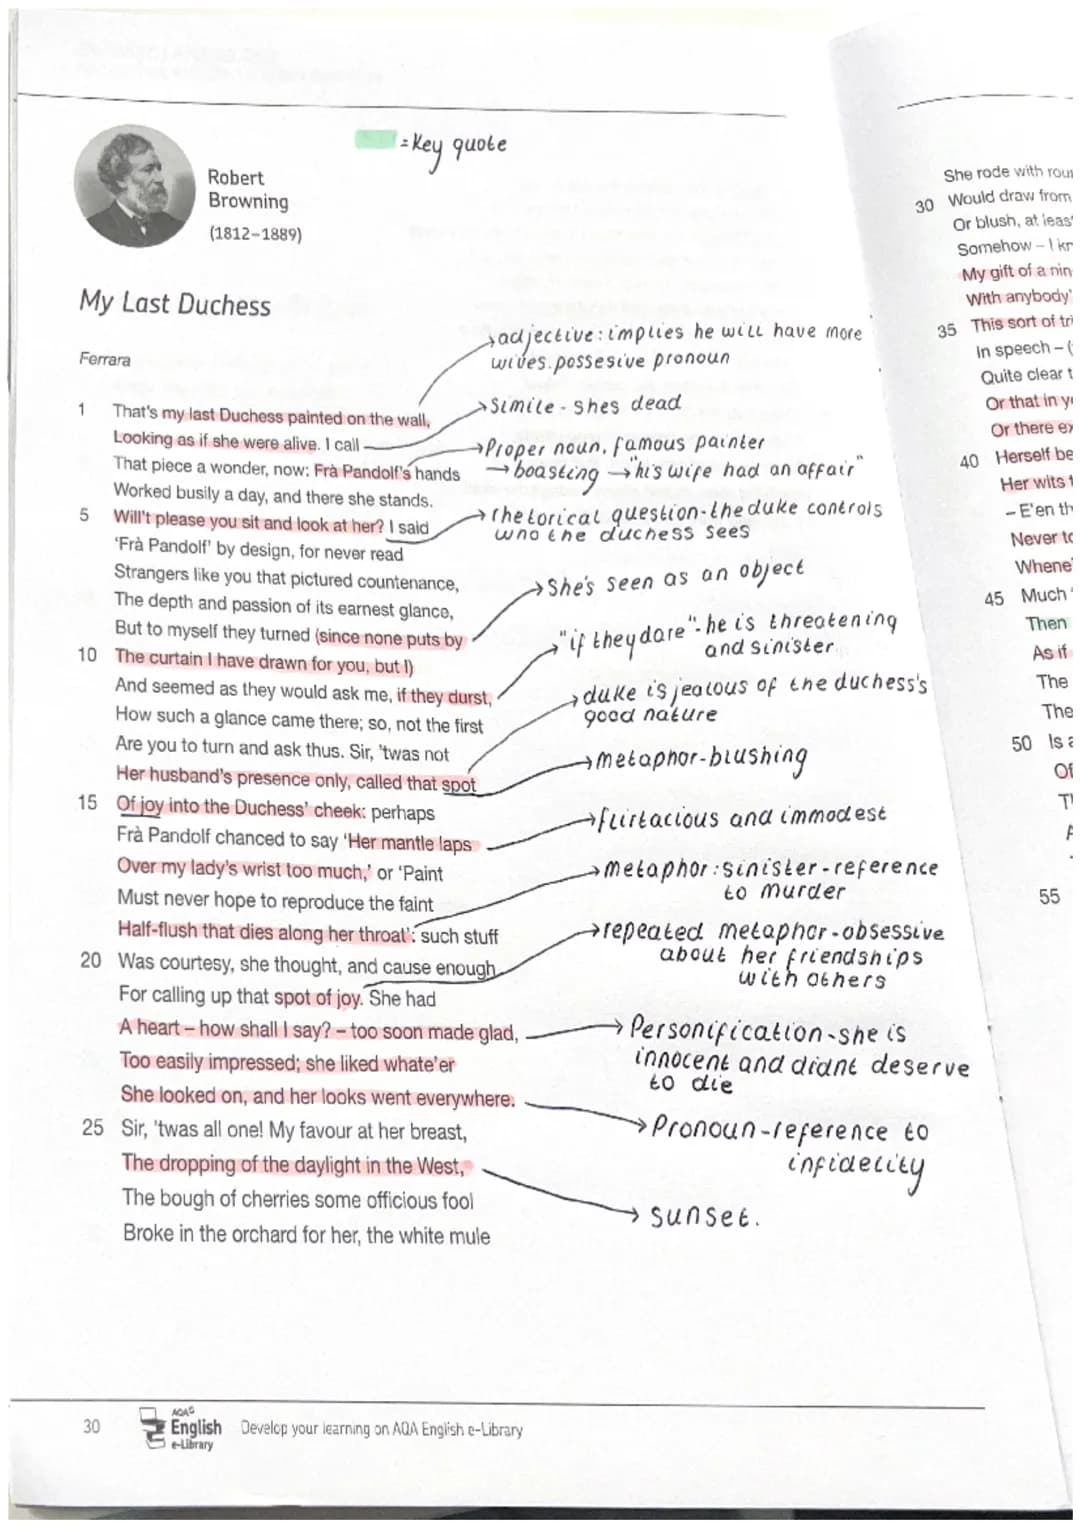 = Key quote
Robert
Browning
(1812–1889)
My Last Duchess
Ferrara
adjective: implies he will have more
wives. possesive pronoun
1 That's my last Duchess painted on the wall,
Simile - shes dead
Looking as if she were alive. I call
Proper noun, famous painter
That piece a wonder, now: Frà Pandolf's hands
→ boasting → "his wife had an affair"
Worked busily a day, and there she stands.
5 Will't please you sit and look at her? I said
rhetorical question - the duke controls
who the duchess sees
'Frà Pandolf' by design, for never read
Strangers like you that pictured countenance,
She's seen as an object
The depth and passion of its earnest glance,
But to myself they turned (since none puts by
"if they dare" - he is threatening
and sinister
10 The curtain I have drawn for you, but I)
And seemed as they would ask me, if they durst,
duke is jealous of the duchess's
good nature
How such a glance came there; so, not the first
Are you to turn and ask thus. Sir, 'twas not
metaphor - blushing
Her husband's presence only, called that spot
15 Of joy into the Duchess' cheek: perhaps
flirtacious and immodest
Frà Pandolf chanced to say 'Her mantle laps
Over my lady's wrist too much,' or 'Paint
metaphor: sinister - reference
to murder
Must never hope to reproduce the faint
Half-flush that dies along her throat': such stuff
repeated metaphor - obsessive
about her friendships
with others
20 Was courtesy, she thought, and cause enough
For calling up that spot of joy. She had
A heart – how shall I say? – too soon made glad,
Personification - she is
innocent and didnt deserve
to die
Too easily impressed; she liked whate'er
She looked on, and her looks went everywhere.
Pronoun - reference to
infidelity
25 Sir, 'twas all one! My favour at her breast,
The dropping of the daylight in the West,
sunset.
The bough of cherries some officious fool
Broke in the orchard for her, the white mule
30
AQA
English
e-Library
Develop your learning on AQA English e-Library
She rode with
30 Would draw from
Or blush, at
Somehow – I
My gift of a
With anybody'
35 This sort of
In speech – (
Quite clear
Or that in
Or there
40 Herself
Her wits
– E'en
Never
45 Much
Then
As if
The
The
50 Is
55